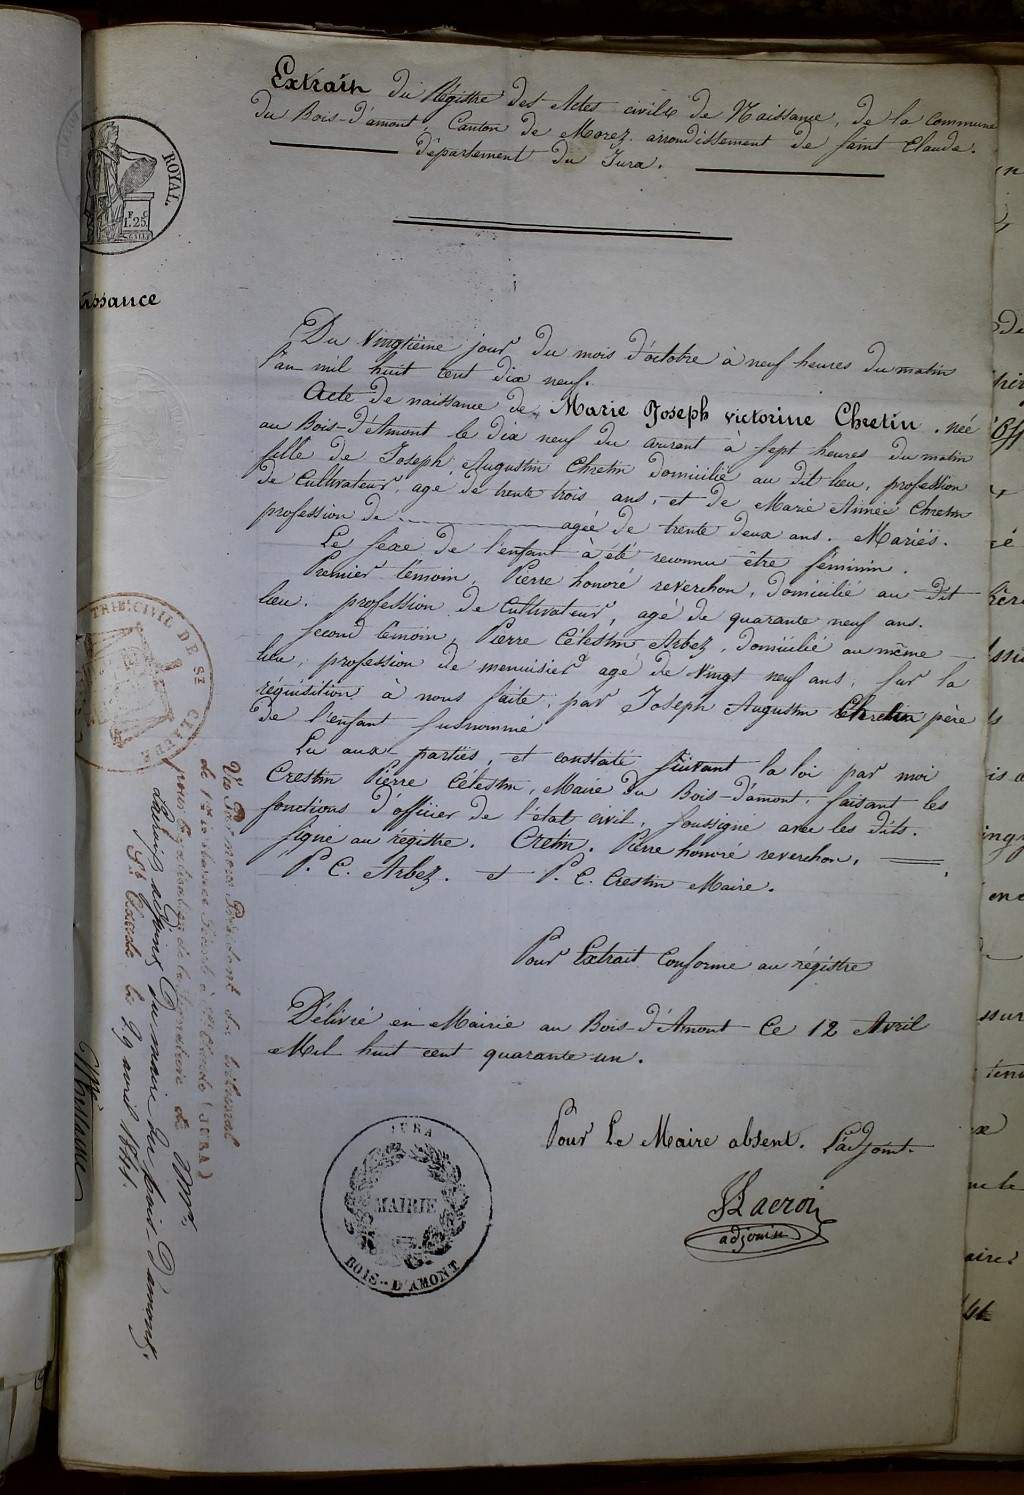 Extrait du Régistre des Actes civils de Naissance, de la Commune
du Bois-d'amont, Canton de Morez. arrondissement de saint Claude.
département du Jura.
ROYAL
F. C.
1.25
issance
Du vingtième jour du mois d'octobre à neuf heures du matin
l'an mil huit cent dix neuf.
Acte de naissance de Marie Joseph victorine Chretin. née
au Bois-d'Amont le dix neuf du courant à sept heures du matin
fille de Joseph Augustin Chretin domicilié au dit lieu, profession
de Cultivateur, agé de trente trois ans, et de Marie Aimée Chretin
profession de agée de trente deux ans. Mariés.
Le sexe de l'enfant à été reconnu être féminin.
Premier témoin, Pierre honoré reverchon, domicilié au dit
lieu. profession de Cultivateur, agé de quarante neuf ans.
second témoin, Pierre Célestin Arbez, domicilié au même
lieu, profession de menuisier agé de vingt neuf ans. sur la
réquisition à nous faite, par Joseph Augustin Chretin père
de l'enfant susnommé
Lu aux parties, et constaté suivant la loi par moi
Crestin Pierre Célestin, Maire du Bois-d'amont, faisant les
fonctions d'officier de l'état civil, soussigné avec les dits.
signé au régistre. Cretin. Pierre honoré reverchon.
P. C. Arbez. et P. C. Crestin Maire.
Pour Extrait conforme au régistre
Délivré en Mairie au Bois-d'Amont Ce 12 Avril
Mil huit cent quarante un.
Pour Le Maire absent. l'adjoint.
Lacroix
adjoint
JURA
MAIRIE
BOIS-D'AMONT
TRIB. CIVIL DE ST CLAUDE
Vu Par nous Président du tribunal
de 1re instance séant à St Claude (JURA)
pour légalisation de la signature de Mr
Lacroix adjoint du maire du bois-d'amont.
St Claude le 29 avril 1841.